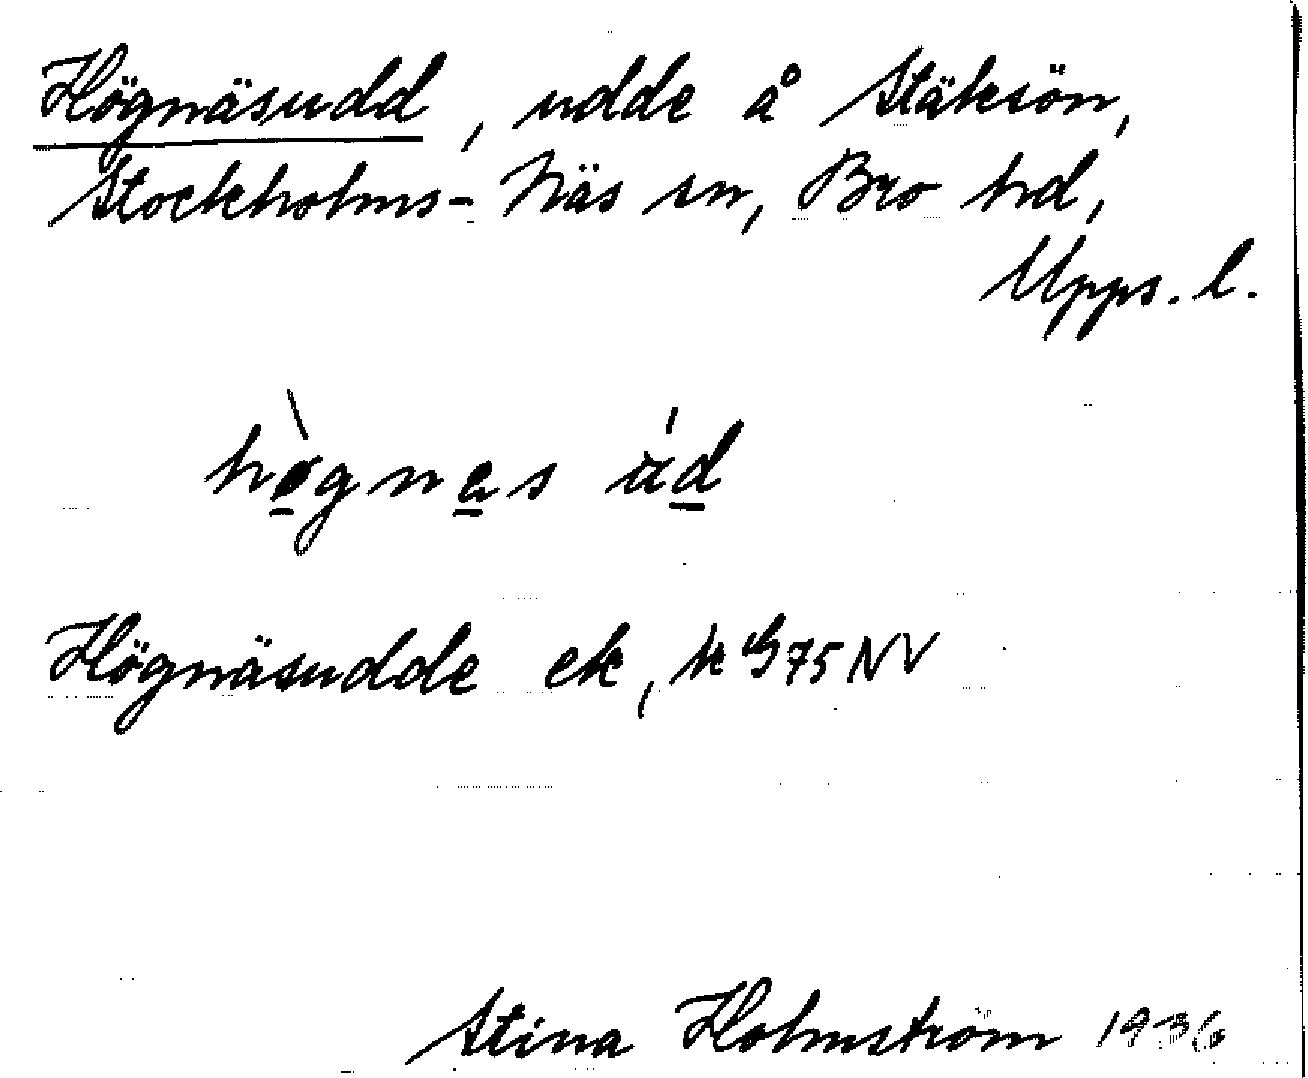 Högnäsudd, udde å Stäksön,
Stockholms-Näs sn, Bro hd,
Upps. l.
hø̀gnas ud
Högnäsudde ek, k G 75 NV
Stina Holmström 1936